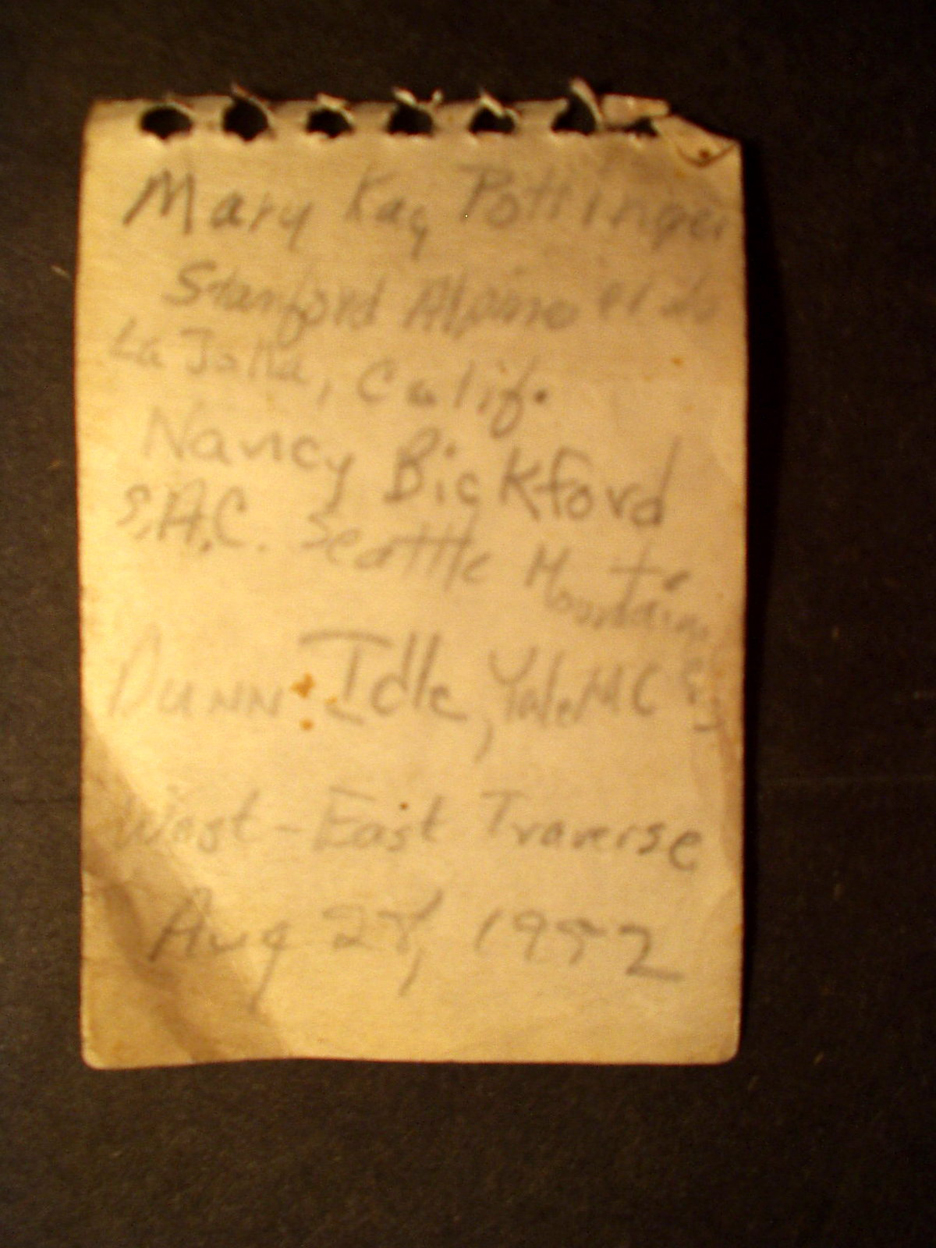 Mary Kay Pottinger
Stanford Alpine Club
La Jolla, Calif.
Nancy Bickford
S.A.C. Seattle Mountain
Dunn Idle, Yale MC
West - East Traverse
Aug 28, 1952